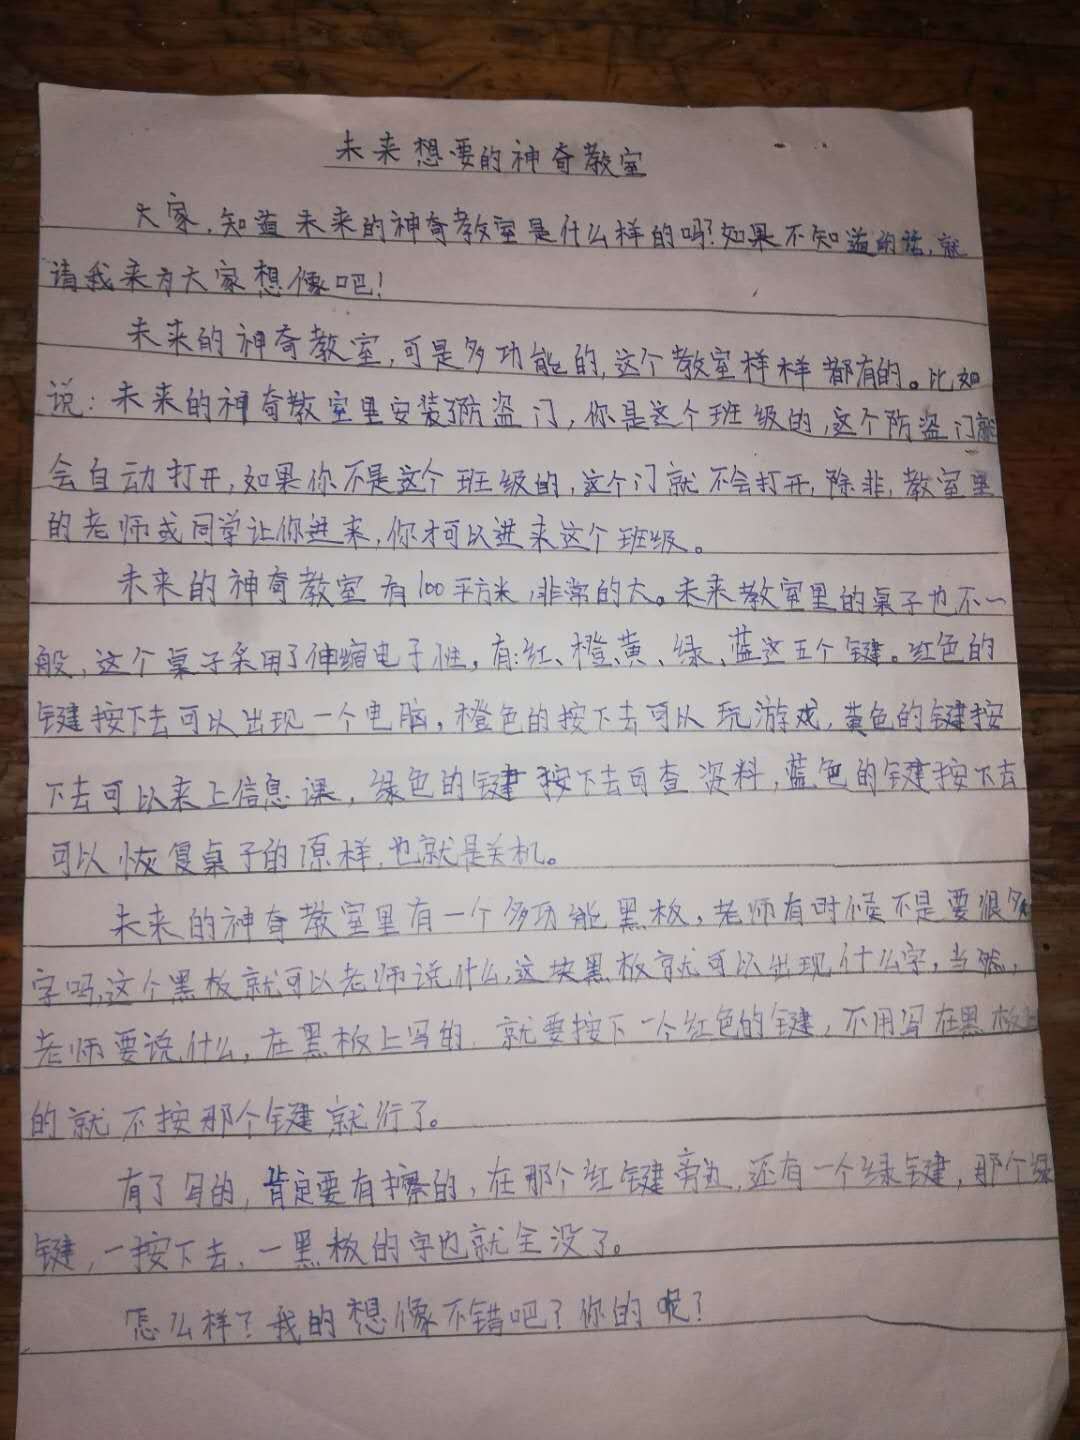 未来想要的神奇教室
大家,知道未来的神奇教室是什么样的吗?如果不知道的话,就
请我来为大家想像吧!
未来的神奇教室,可是多功能的,这个教室样样都有的。比如
说:未来的神奇教室里安装了防盗门,你是这个班级的,这个防盗门就
会自动打开,如果你不是这个班级的,这个门就不会打开,除非,教室里
的老师或同学让你进来,你才可以进来这个班级。
未来的神奇教室有100平方米,非常的大。未来教室里的桌子也不一
般,这个桌子采用了伸缩电子性,有:红、橙、黄、绿、蓝这五个键。红色的
键按下去可以出现一个电脑,橙色的按下去可以玩游戏,黄色的键按
下去可以来上信息课,绿色的键按下去可查资料,蓝色的键按下去
可以恢复桌子的原样,也就是关机。
未来的神奇教室里有一个多功能黑板,老师有时候不是要很多
字吗,这个黑板就可以老师说什么,这块黑板就可以出现什么字,当然,
老师要说什么,在黑板上写的,就要按下一个红色的键,不用写在黑板
的就不按那个键就行了。
有了写的,肯定要有擦的,在那个红键旁边,还有一个绿键,那个绿
键,一按下去,一黑板的字也就全没了。
怎么样?我的想像不错吧?你的呢?